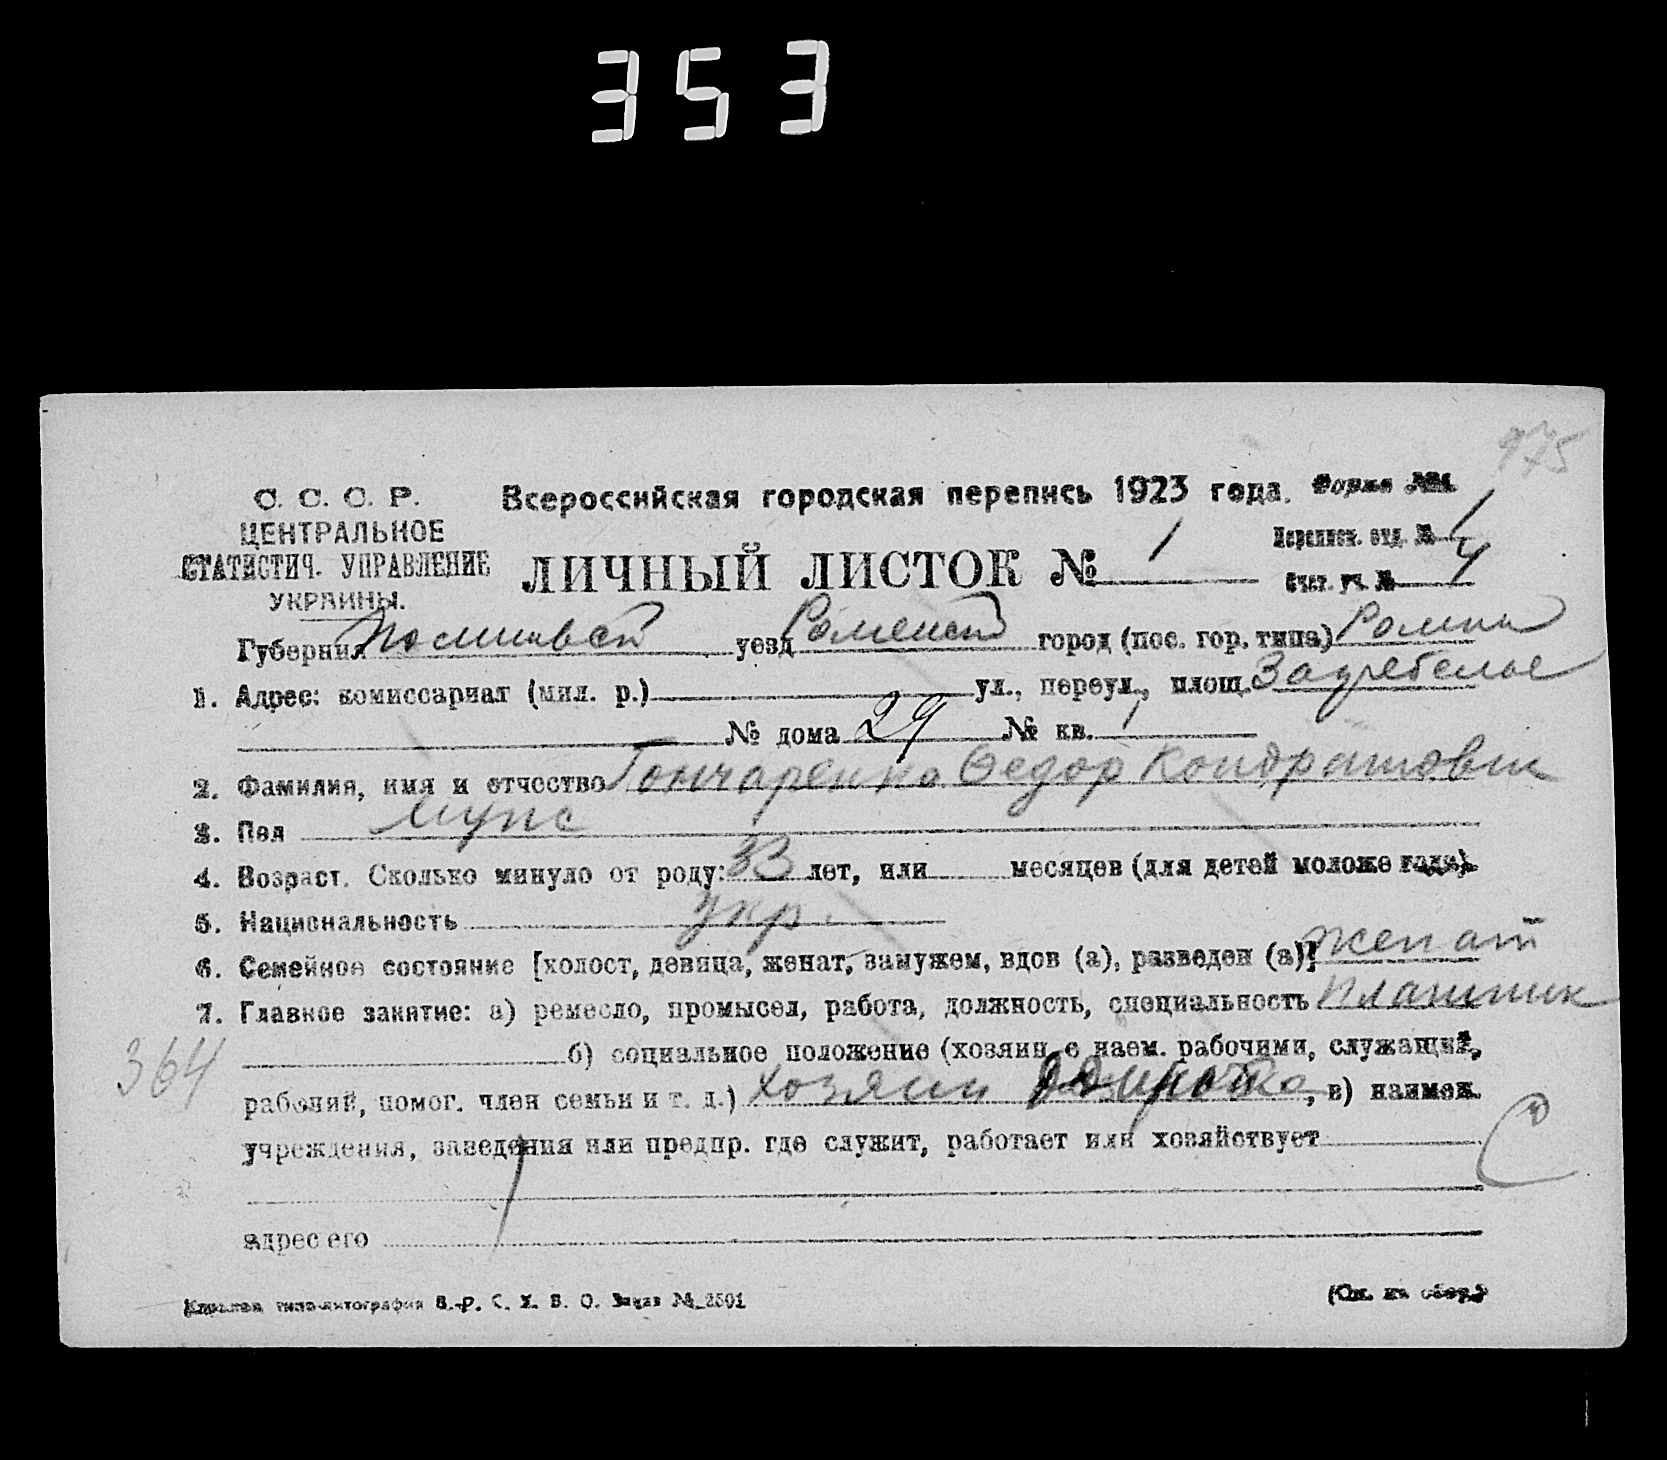 353
975
С. С. С. Р.
ЦЕНТРАЛЬНОЕ
СТАТИСТИЧ. УПРАВЛЕНИЕ
УКРАИНЫ.
Всероссийская городская перепись 1923 года. Форма №1.
ЛИЧНЫЙ ЛИСТОК № 1
Переписн. отд. № 1
Счет. уч. № 4
Губерния Полтавск уезд Роменский город (пос. гор. типа) Ромны
1. Адрес: комиссариат (мил. р.) ул., переул., площ. Загребелье
№ дома 29 № кв. 1
2. Фамилия, имя и отчество Гончаренко Ѳедор Кондратович
3. Пол Мужс
4. Возраст. Сколько минуло от роду: 33 лет, или месяцев (для детей моложе года).
5. Национальность укр.
6. Семейное состояние [холост, девица, женат, замужем, вдов (а), разведен (а)] женат
7. Главное занятие: а) ремесло, промысел, работа, должность, специальность плотник
364
б) социальное положение (хозяин с наем. рабочими, служащий,
рабочий, помог. член семьи и т. д.) хозяин одиночка, в) наимен.
учреждения, заведения или предпр. где служит, работает или хозяйствует
адрес его
типо-литография В.-Р. С. Х. В. О. Заказ № 2501
(См. на обор.)